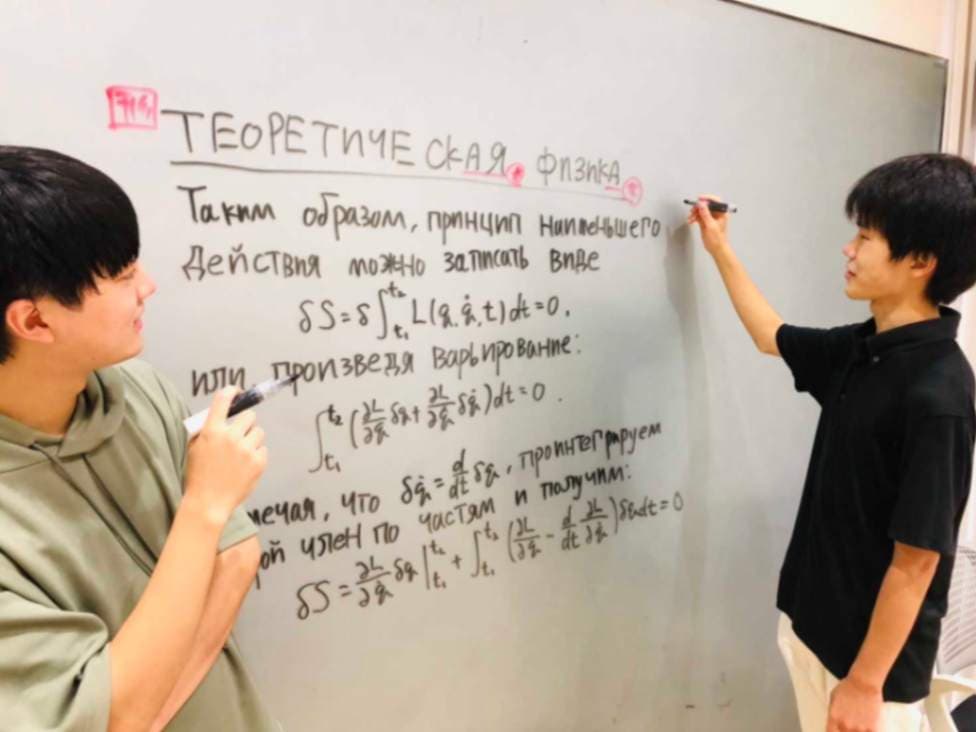 ТЕОРЕТИЧЕСКАЯ ФИЗИКА
Таким образом, принцип наименьшего
действия можно записать виде
δS = δ∫_{t₁}^{t₂} L(q, q̇, t) dt = 0.
или произведя варьирование:
∫_{t₁}^{t₂} (∂L/∂q δq + ∂L/∂q̇ δq̇) dt = 0.
что δq̇ = d/dt δq, проинтегрируем
член по частям и получим:
δS = ∂L/∂q̇ δq |_{t₁}^{t₂} + ∫_{t₁}^{t₂} (∂L/∂q − d/dt ∂L/∂q̇) δq dt = 0